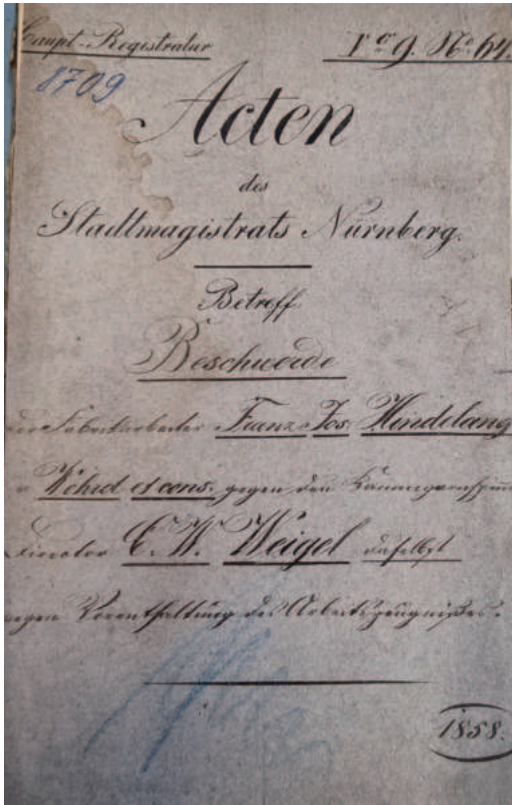 Haupt-Registratur
8709
Acten
des
Stadtmagistrats Nürnberg.
Betreff
Beschwerde
der Fabrikarbeiter Franz Jos. Hindelang
Wöhrd et cons. gegen den Kammgarnspinn
C. W. Weigel daselbst
wegen Vorenthaltung des Arbeitszeugnißes.
1858.